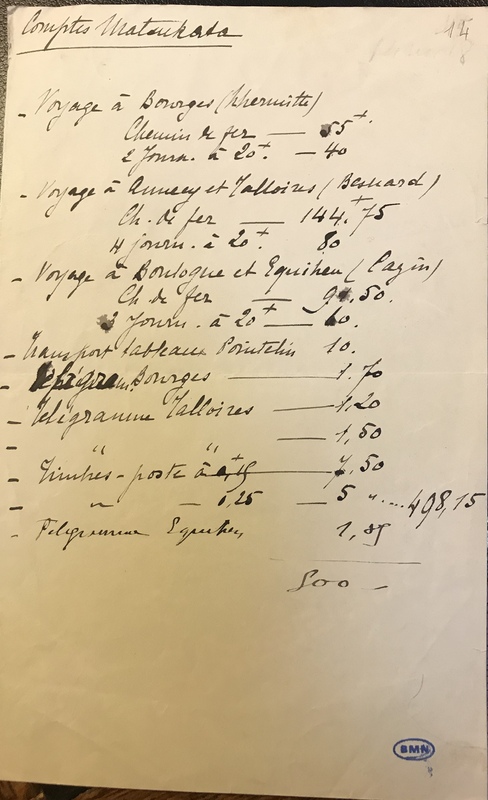 Comptes Matsukata
14
- Voyage à Bourges (Lhermitte)
Chemin de fer — 55 f.
2 Journ. à 20 f. — 40
- Voyage à Annecy et Talloires (Besnard)
Ch. de fer — 144 f. 75
4 journ. à 20 f. 80
- Voyage à Boulogne et Equihen (Cazin)
Ch. de fer — 91.50.
3 Journ. à 20 f — 60.
- Transport tableaux Pointelin 10.
- Télégram. Bourges — 1.70
- Télégramme Talloires — 1,20
- " " — 1,50
- Timbres-poste à 0,15 — 7,50
- " — 0,25 — 5 " .... 498,15
- Télégramme Equihen 1,85
500 -
BMN